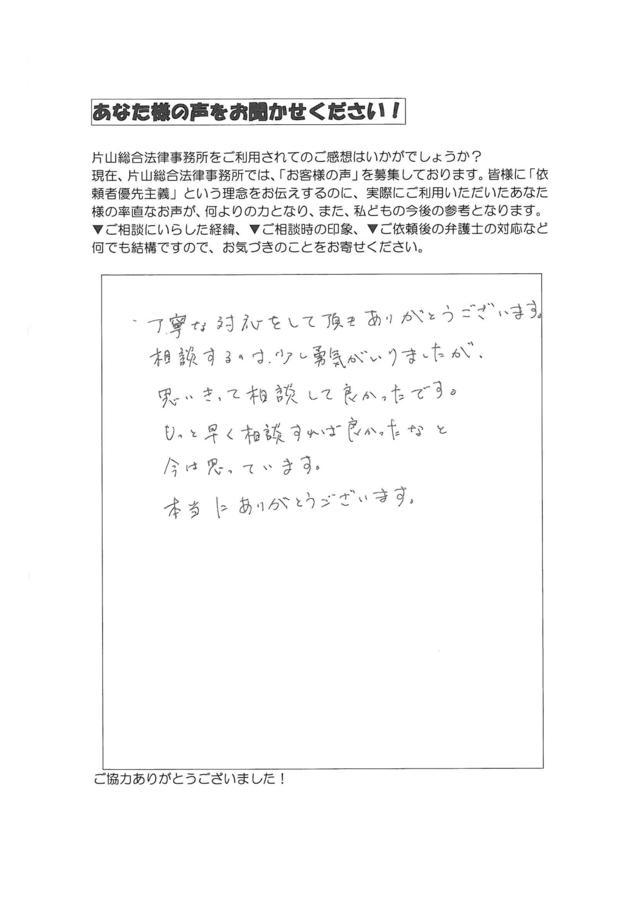 あなた様の声をお聞かせください！
片山総合法律事務所をご利用されてのご感想はいかがでしょうか？
現在、片山総合法律事務所では、「お客様の声」を募集しております。皆様に「依
頼者優先主義」という理念をお伝えするのに、実際にご利用いただいたあなた
様の率直なお声が、何よりの力となり、また、私どもの今後の参考となります。
▼ご相談にいらした経緯、▼ご相談時の印象、▼ご依頼後の弁護士の対応など
何でも結構ですので、お気づきのことをお寄せください。
・丁寧な対応をして頂きありがとうございます。
相談するのは、少し勇気がいりましたが、
思いきって相談して良かったです。
もっと早く相談すれば良かったなと
今は思っています。
本当にありがとうございます。
ご協力ありがとうございました！